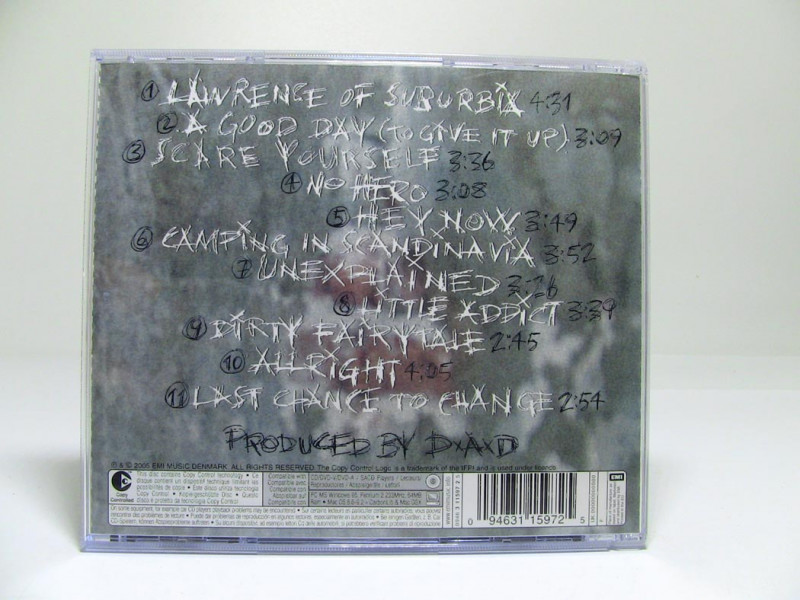 1 LAWRENCE OF SUBURBIA 4:31
2 A GOOD DAY (TO GIVE IT UP) 3:09
3 SCARE YOURSELF 3:36
4 NO HERO 3:08
5 HEY NOW 3:49
6 CAMPING IN SCANDINAVIA 3:52
7 UNEXPLAINED
8 LITTLE ADDICT 3:39
9 DIRTY FAIRYTALE 2:45
10 ALLRIGHT 4:05
11 LAST CHANCE TO CHANGE 2:54
PRODUCED BY DxAxD
EMI MUSIC DENMARK. ALL RIGHTS RESERVED. The Copy Control Logo is a trademark of the IFPI and is used under licence
This disc contains Copy Control technology
Copy Controlled
EMI
0 94631 15972 5